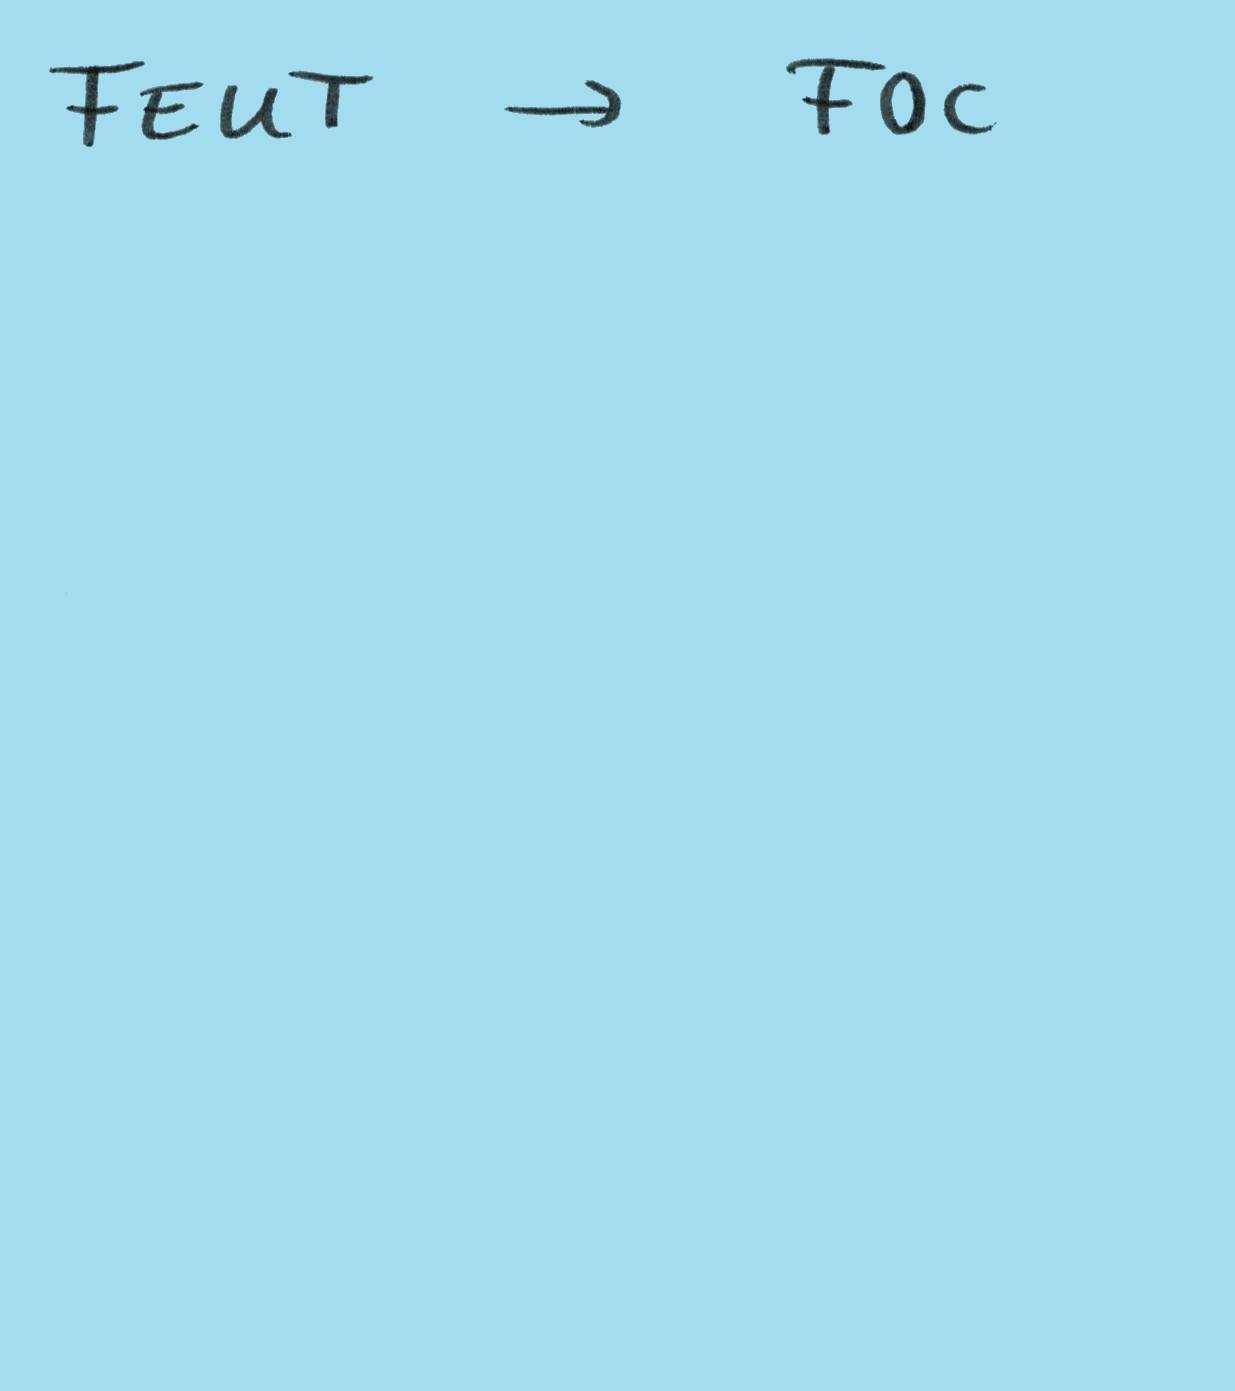 FEUT → FOC